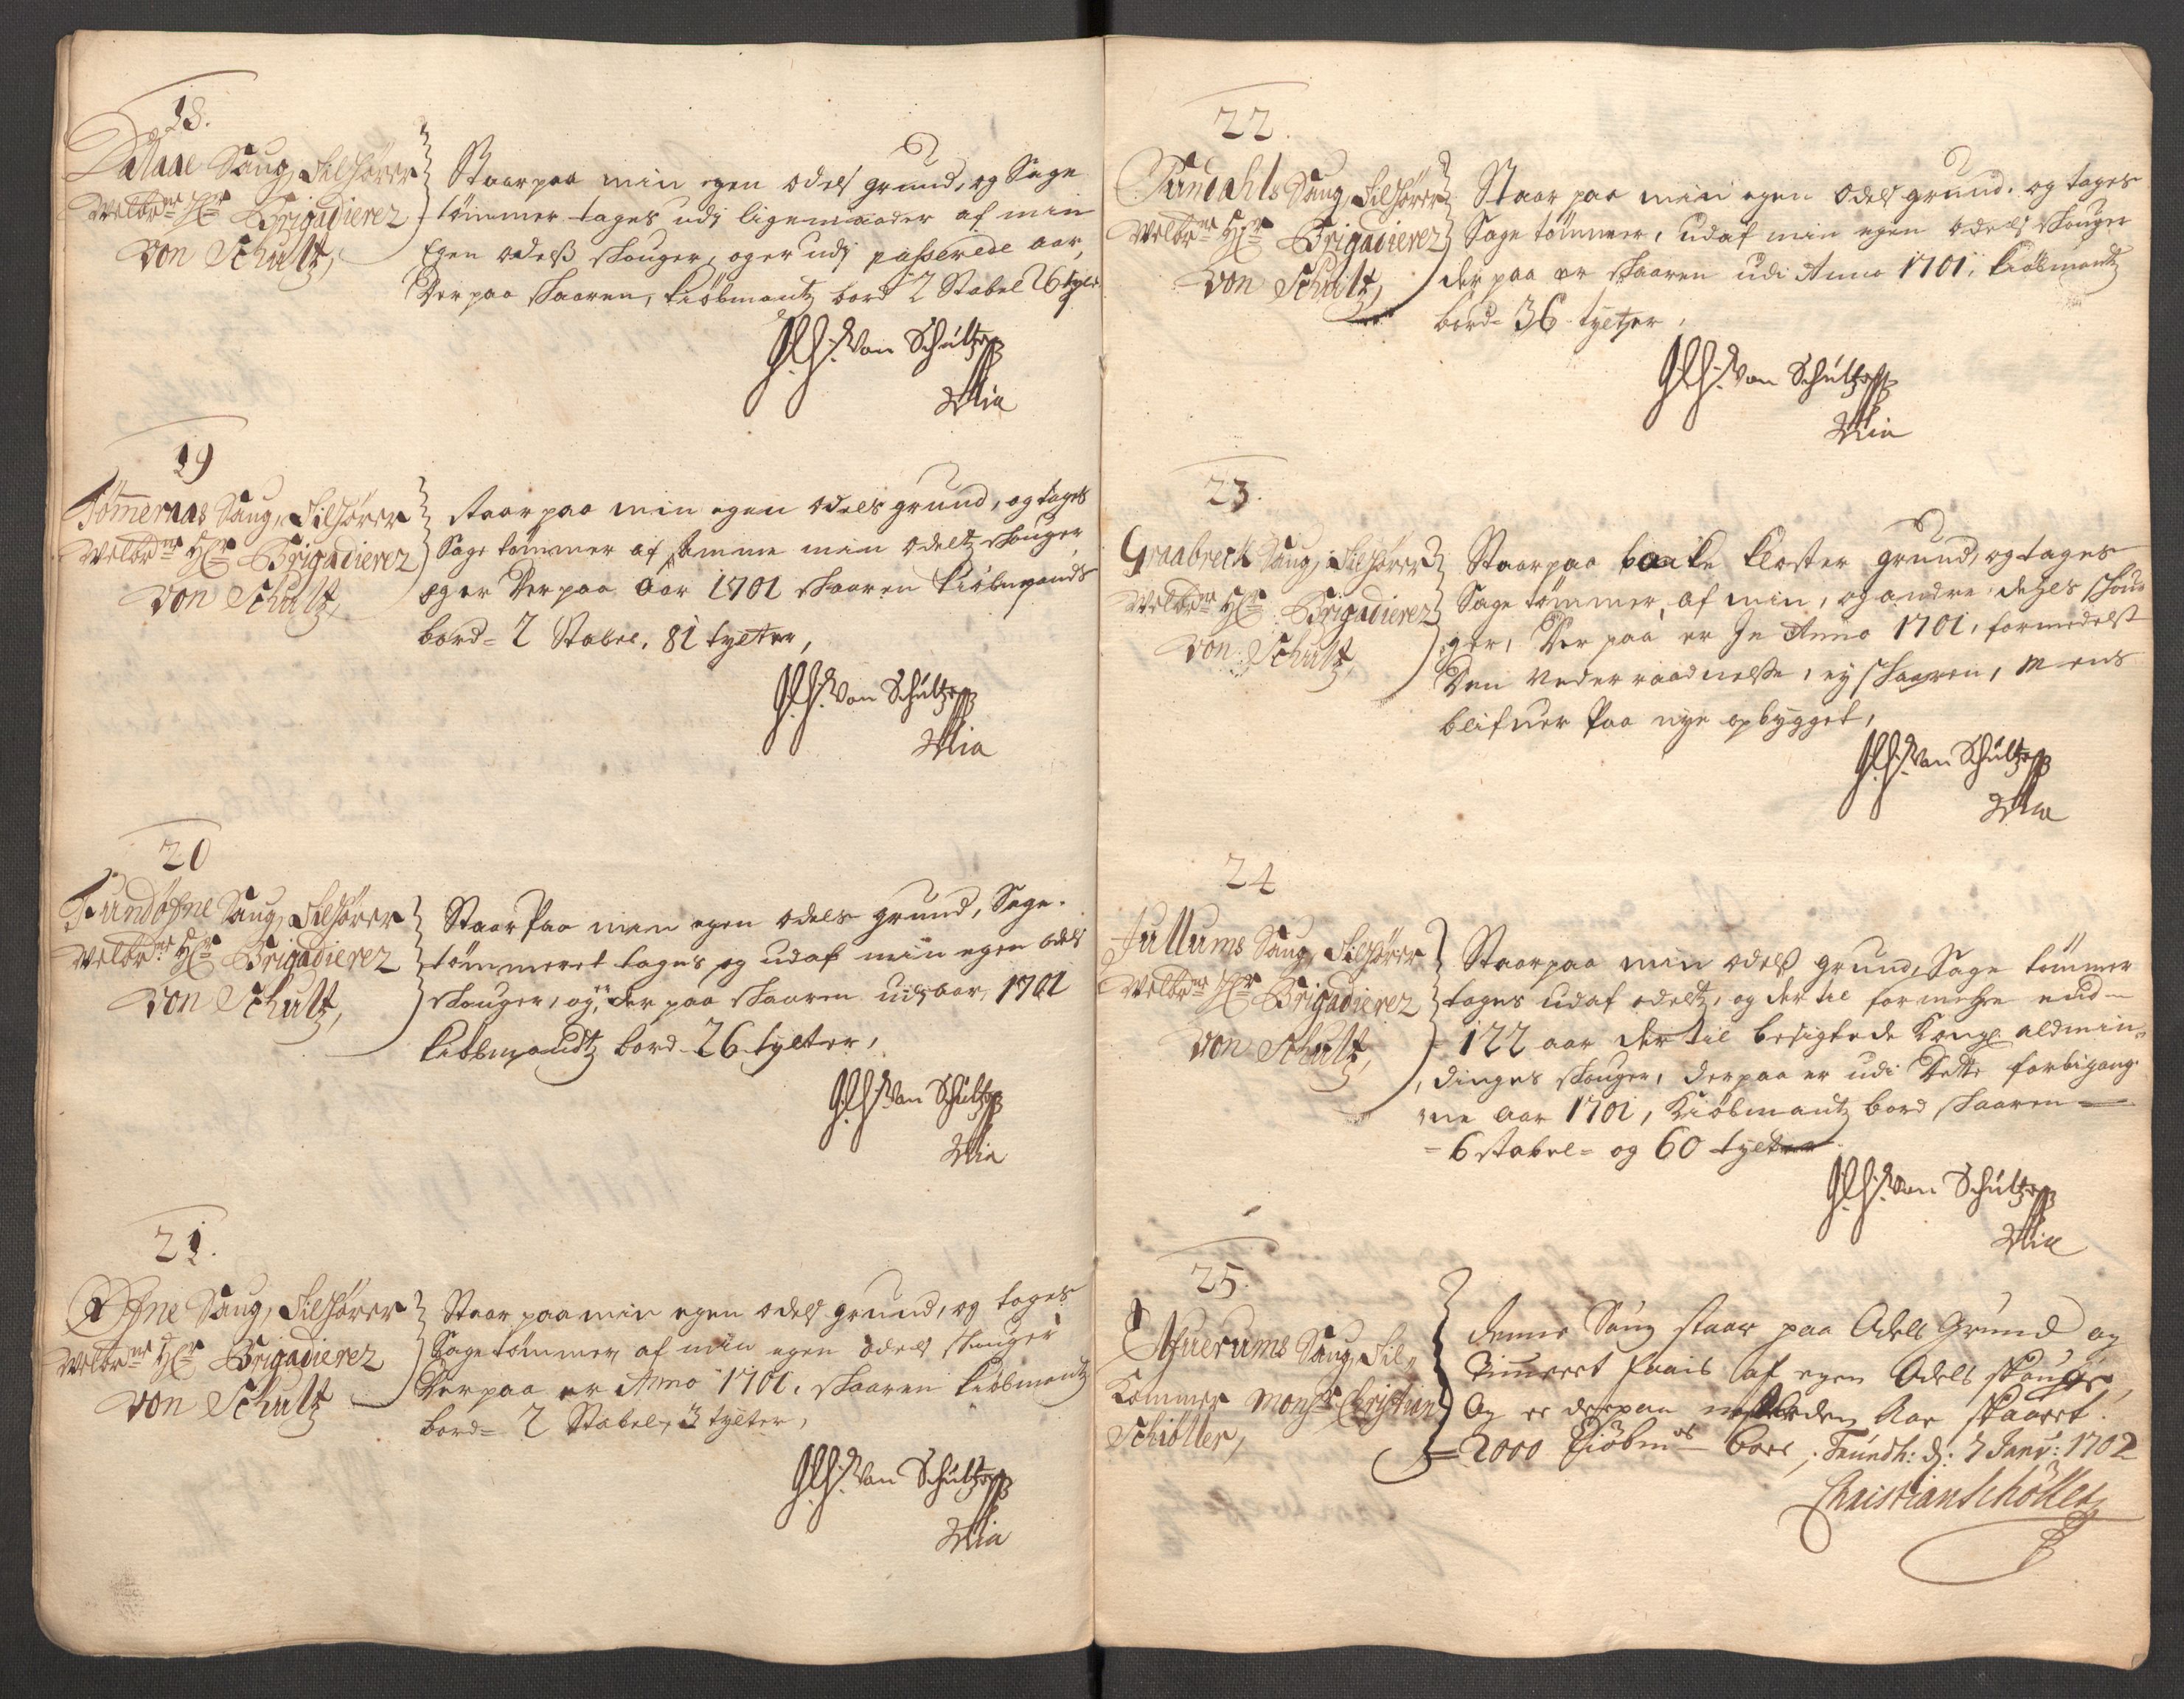 18.
Saug, Tilhører
Welbr HEr Brigadierer
von Schultz,
Staar paa min egen odels grund, og Sage
tømmer tages udj ligemaader af min
Egen odelß skouger, og er udj passerede aar,
Der paa skaaren, kiøbmantz bord 2 Stabel 26 tylt
von Schultz
Mia
19
Tömernas Saug, Tilhører
Welbr HEr Brigadierer
von Schultz,
staar paa min egen odels grund, og tages
Sage tømmer af samme min odeltz skouger
og er Der paa Aar 1701 skaaren kiøbmands
bord= 2 Stabel, 81 tylter,
von Schultz
Mia
20
Fundösne Saug, Tilhører
Welbr HEr Brigadierer
von Schultz,
Staar Paa min egen odels grund, Sage-
tømmeret tages og udaf min egen odels
skouger, og er der paa skaaren udj aar, 1701
kiøbmandtz bord 26 tylter,
von Schultz
Mia
21.
Saug, Tilhører
Welbr HEr Brigadierer
von Schultz
Staar paa min egen odels grund, og tages
Sage tømmer af min egen odels skouger
Der paa er Anno 1701. skaaren kiøbmantz
bord= 2 Stabel, 3 tylter,
von Schultz
Mia
22.
Saug, Tilhører
Welbr HEr Brigadierer
von Schultz,
Staar paa min egen odels grund. og tages
Sage tømmer, udaf min egen odels skouger
der paa er skaaren udi Anno 1701, kiøbmantz
bord= 36 tylter,
von Schultz
Mia
23.
Graabreck Saug, Tilhører
Welbr HEr Brigadierer
von Schultz,
Staar paa bakke kloster grund, og tages
Sage tømmer, af min, og andre odels skou
ger, Der paa er Jn Anno 1701, formedelst
Den nederraadnelse, ej skaaren, mens
blifuer Paa nye opbygget,
von Schultz
Mia
24
Jullums Saug, Tilhører
Welbr HEr Brigadierer
von Schultz,
Staar paa min odelß grund, Sage tømmer
tages udaf odeltz, og der til formehre end
122 aar der til besigtede Kongl aldmin,
dinges skouger, der paa er udi Dette forbigang
ne aar 1701, kiøbmantz bord skaaren
6 stabel= og 60 tylter.
von Schultz
Mia
25.
Saug, Til,
Kommer Monsr Christian
Schiöller,
denne Saug staar paa Odels Grund og
Timmert faais af egen Odels skouge,
Og er derpaa Aar skaaret.
2000 kiöbm bord, Trundh: d: 7 Janv: 1702
Christian Schöller